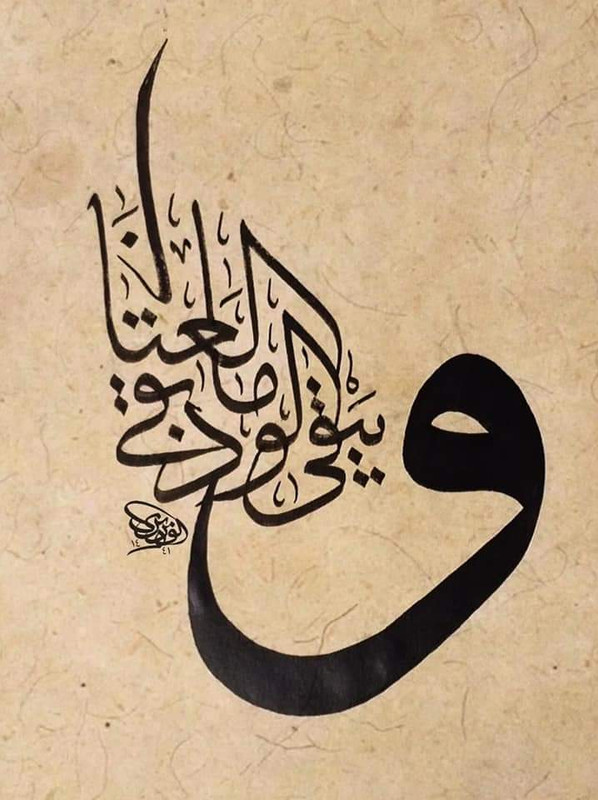 ويبقى الود ما بقي العتاب
١٤٤١